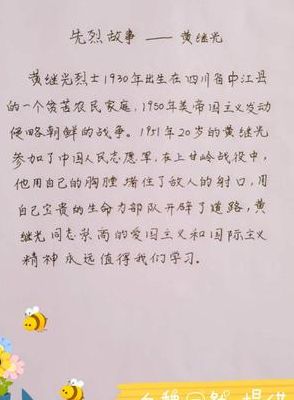 先烈故事 —— 黄继光
黄继光烈士1930年出生在四川省中江县
的一个贫苦农民家庭，1950年美帝国主义发动
侵略朝鲜的战争。1951年20岁的黄继光
参加了中国人民志愿军，在上甘岭战役中，
他用自己的胸膛堵住了敌人的射口，用
自己宝贵的生命为部队开辟了道路，黄
继光同志崇高的爱国主义和国际主义
精神永远值得我们学习。